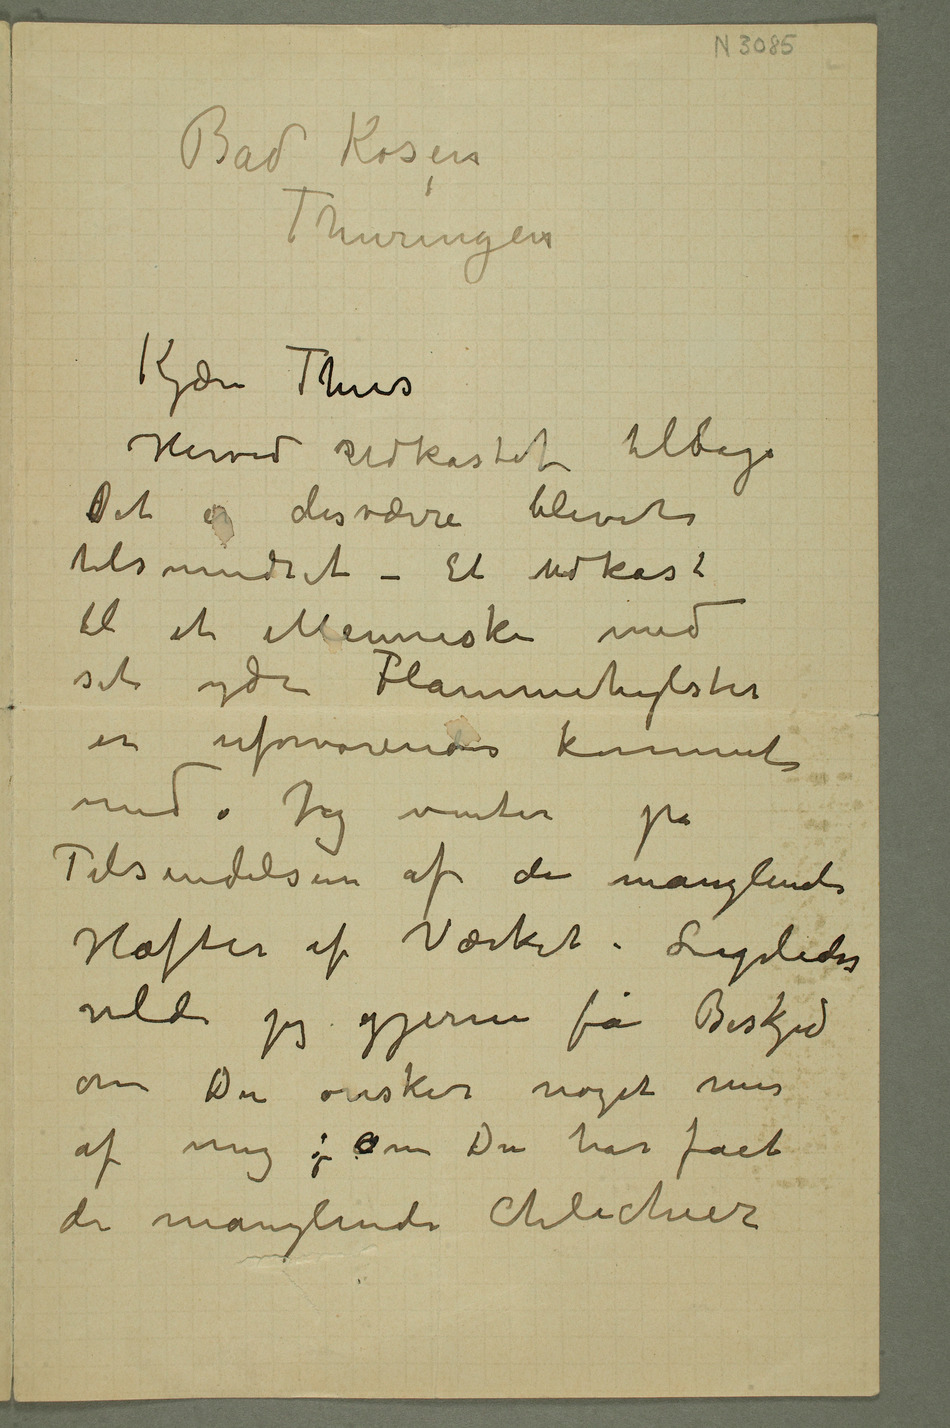 N 3085
Bad Kosen
Thuringen
Kjære Thiis
Herved Udkastet tilbage
Det er desværre blevet
tilsmudset – Et Udkast
til et Menneske med
sit ydre Flammehylster
er uforvarendes kommet
med. Jeg venter på
Tilsendelsen af de manglende
Hæfter af Værket. Ligeledes
vilde jeg gjerne få Beskjed
om Du ønsker noget mer
af mig; om Du har fået
de manglende Chlicheer